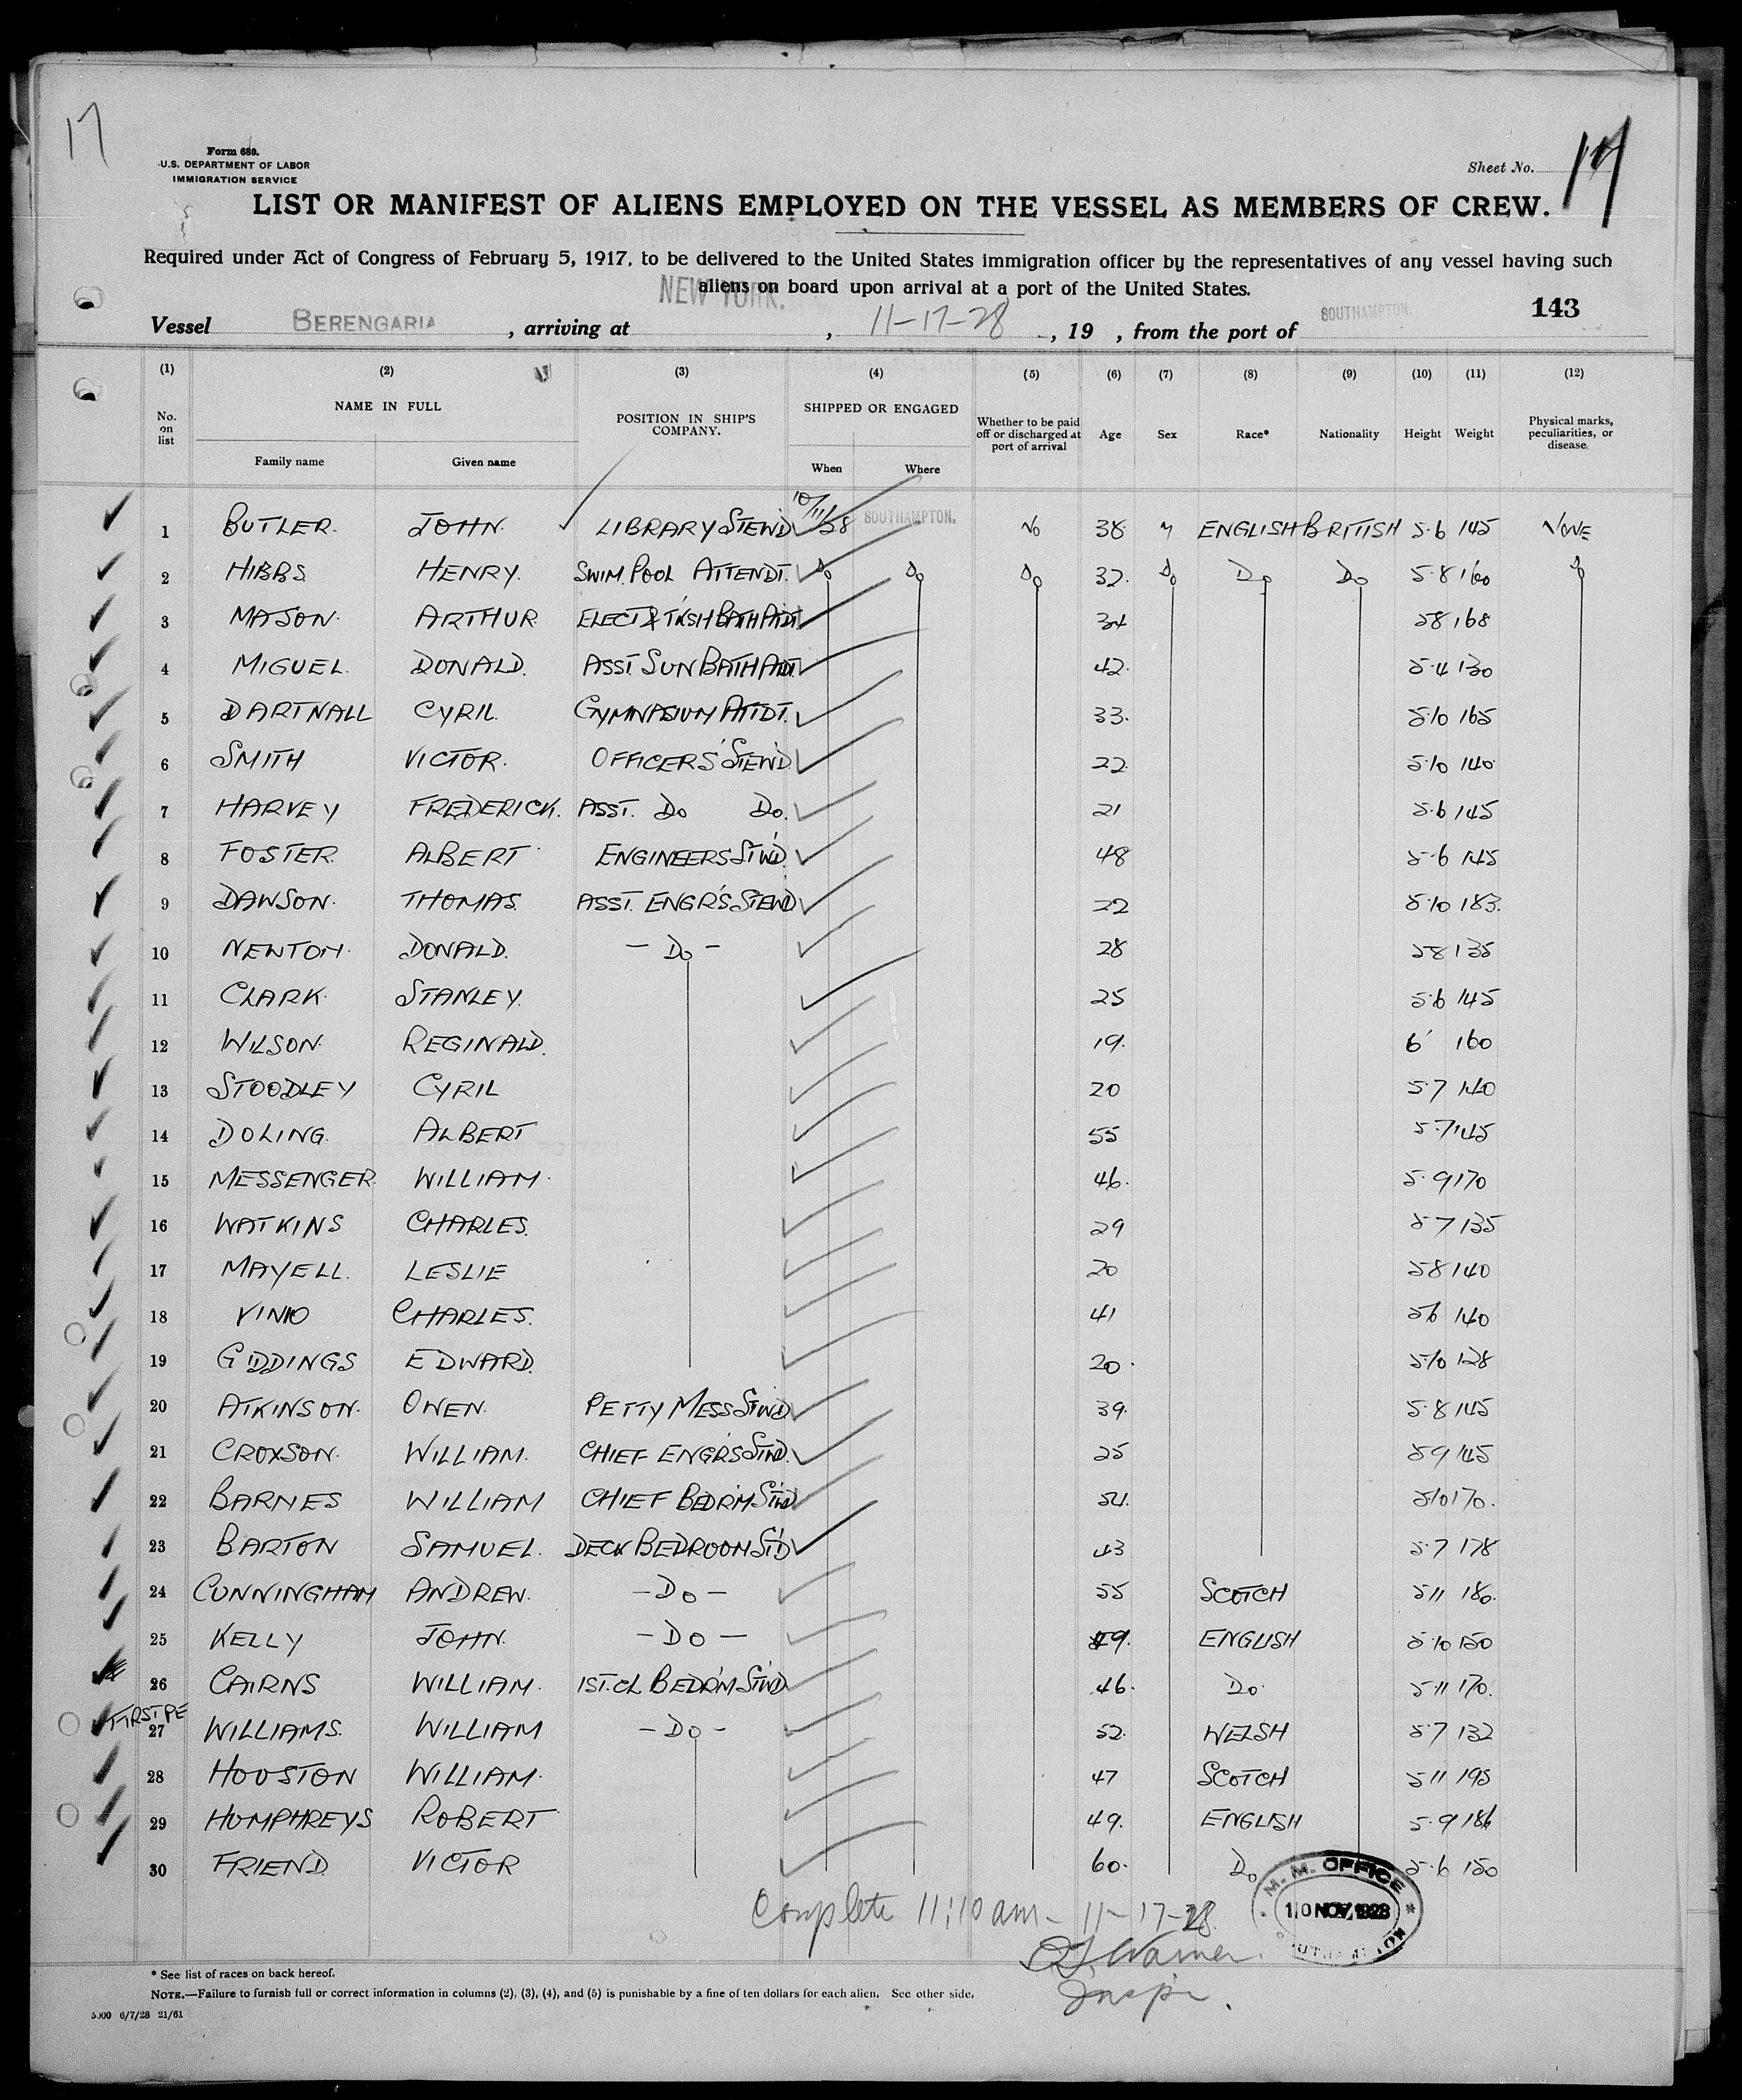 17
Form 680.
U.S. DEPARTMENT OF LABOR
IMMIGRATION SERVICE
Sheet No. 17
LIST OR MANIFEST OF ALIENS EMPLOYED ON THE VESSEL AS MEMBERS OF CREW.
Required under Act of Congress of February 5, 1917, to be delivered to the United States immigration officer by the representatives of any vessel having such
aliens on board upon arrival at a port of the United States.
143
Vessel BERENGARIA, arriving at NEW YORK., 11-17-28, 19 , from the port of SOUTHAMPTON.
(1) (2) (3) (4) (5) (6) (7) (8) (9) (10) (11) (12)
No. on list NAME IN FULL POSITION IN SHIP'S COMPANY. SHIPPED OR ENGAGED Whether to be paid off or discharged at port of arrival Age Sex Race* Nationality Height Weight Physical marks, peculiarities, or disease.
Family name Given name When Where
1 BUTLER. JOHN. LIBRARY STEWD 10/11/28 SOUTHAMPTON. No 38. M ENGLISH BRITISH 5.6 145 NONE
2 HIBBS HENRY. SWIM. POOL ATTENDT. Do Do Do 32. Do Do Do 5.8 160 Do
3 MASON. ARTHUR. ELECT & T'KSH BATH ATDT 34 5 8 168
4 MIGUEL. DONALD. ASST. SUN BATH ATDT. 42. 5.4 130
5 DARTNALL CYRIL. GYMNASIUM ATTDT. 33. 5.10 165
6 SMITH VICTOR. OFFICERS' STEW'D 22 5.10 140.
7 HARVEY FREDERICK. ASST. Do Do. 21 5.6 145
8 FOSTER. ALBERT. ENGINEERS STW'D. 48 5.6 145
9 DAWSON. THOMAS. ASST. ENGR'S STEWD 22 5.10 183.
10 NEWTON. DONALD. - Do - 28 5 8 135
11 CLARK. STANLEY. 25 5.6 145
12 WILSON. REGINALD. 19. 6' 160
13 STOODLEY CYRIL 20 5.7 140
14 DOLING. ALBERT 55 5.7 145
15 MESSENGER. WILLIAM. 46. 5.9 170
16 WATKINS CHARLES. 29 5 7 135
17 MAYELL. LESLIE 20 5 8 140
18 CHARLES. 41 5 6 140
19 GIDDINGS EDWARD. 20. 5.10 128
20 ATKINSON. OWEN. PETTY MESS STW'D 39. 5.8 145
21 CROXSON. WILLIAM. CHIEF ENGR'S STWD. 25 5 9 145
22 BARNES WILLIAM CHIEF BEDR'M STWD 54. 5 10 170.
23 BARTON SAMUEL. DECK BEDROOM ST'D 43 5.7 178
24 CUNNINGHAM ANDREW. - Do - 55 SCOTCH 5 11 180.
25 KELLY JOHN. - Do - 49. ENGLISH 5.10 150
26 CAIRNS WILLIAM. 1ST. CL BEDR'M STW'D 46. Do. 5 11 170.
27 WILLIAMS. WILLIAM - Do - 52. WELSH 5.7 132
28 HOUSTON WILLIAM. 47 SCOTCH 5 11 195
29 HUMPHREYS ROBERT 49. ENGLISH 5.9 186
30 FRIEND. VICTOR 60. Do 5.6 150
Complete 11:10 am - 11-17-28.
M. M. OFFICE
10 NOV. 1928
Warner.
Inspr.
* See list of races on back hereof.
NOTE.—Failure to furnish full or correct information in columns (2), (3), (4), and (5) is punishable by a fine of ten dollars for each alien. See other side.
5000 6/7/28 21/61